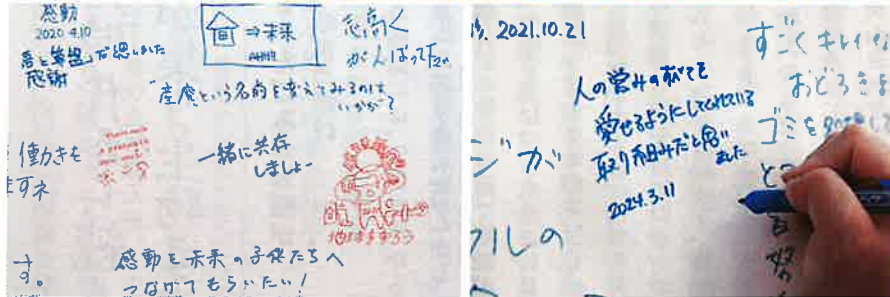 感動
2020 4.10
感謝
⇒未来
志高く
がんばって下さい
"産廃という名前を変えてみるのは
いかが?
働きを
ますネ
一緒に共存
しましょー
地球まもろう
す。
感動を未来の子供たちへ
つなげてもらいたい!
2021.10.21
すごくキレイな
おどろきま
ゴミを
人の営みのすべてを
愛せるようにしてくれている
取り組みだと思い
ました
2024.3.11
ジが
クルの
と
る
努